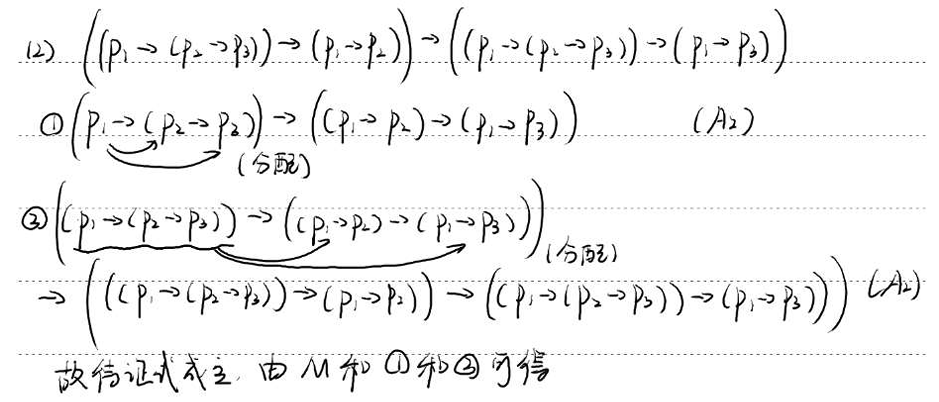 (2) ((p₁→(p₂→p₃))→(p₁→p₂))→((p₁→(p₂→p₃))→(p₁→p₃))
① (p₁→(p₂→p₃))→((p₁→p₂)→(p₁→p₃)) (A₂)
(分配)
② ((p₁→(p₂→p₃))→((p₁→p₂)→(p₁→p₃)))
(分配)
→(((p₁→(p₂→p₃))→(p₁→p₂))→((p₁→(p₂→p₃))→(p₁→p₃))) (A₂)
故待证式成立, 由 M 和 ① 和 ② 可得